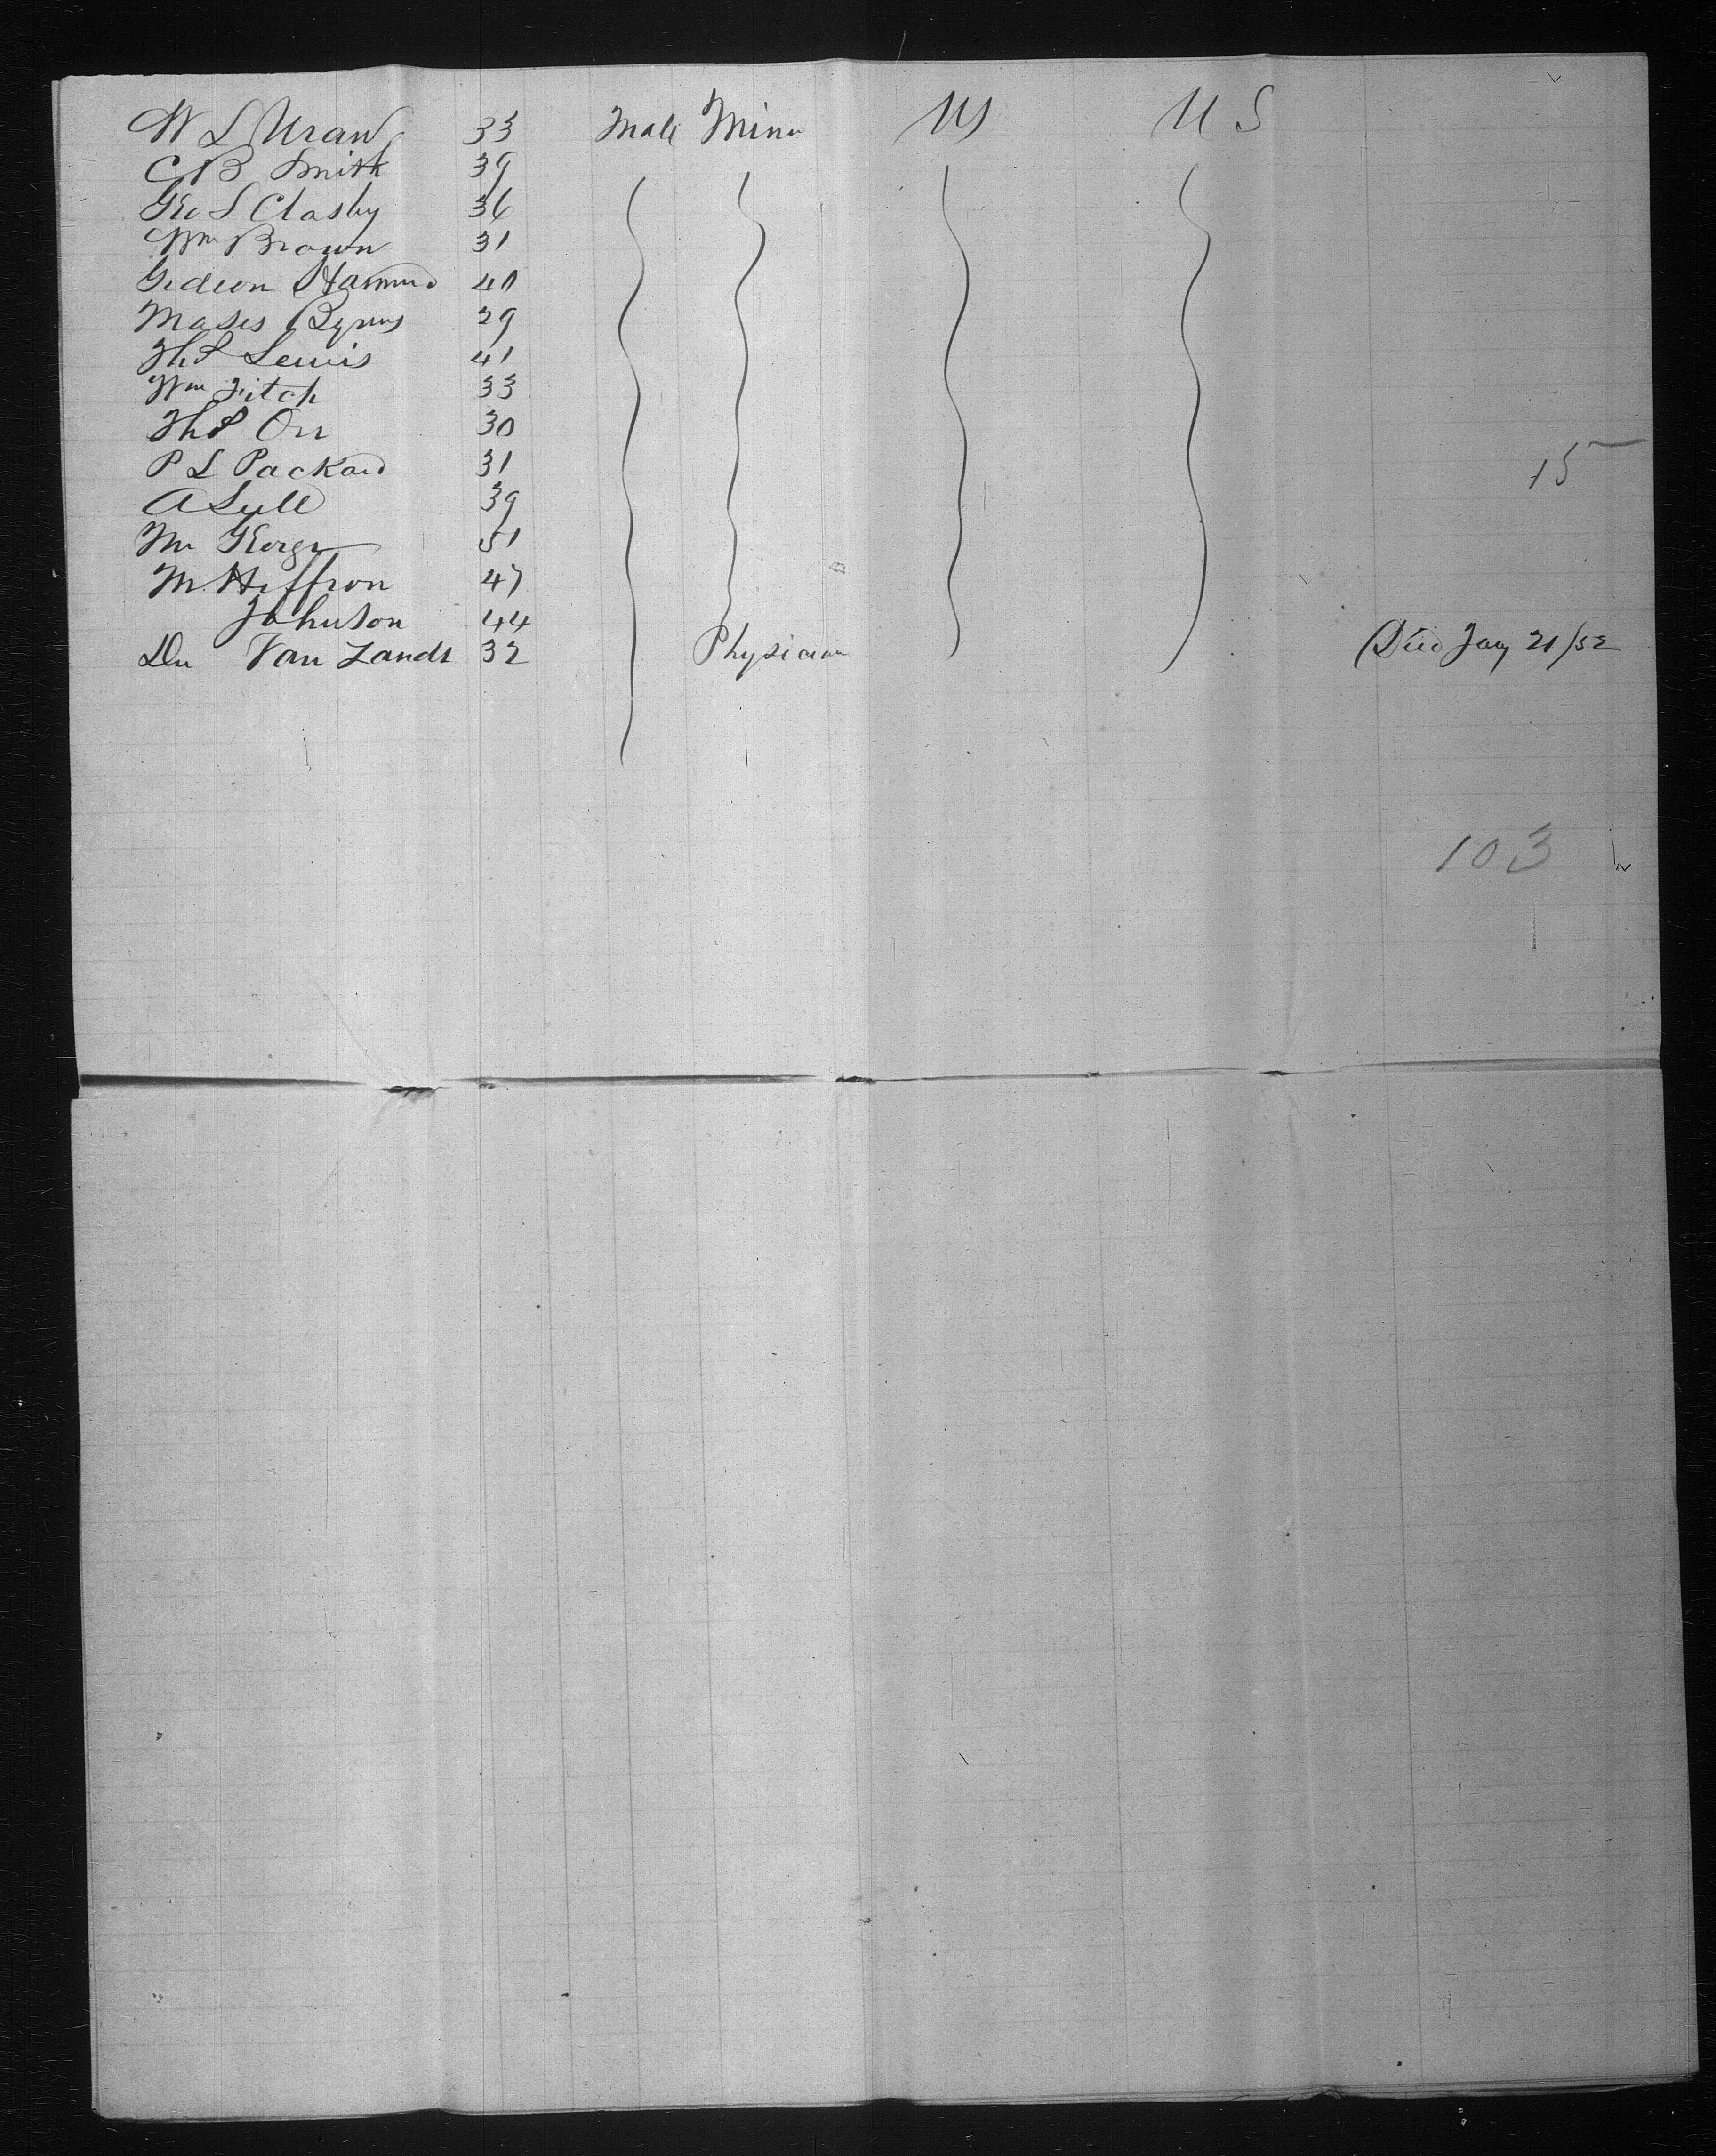 W L Uran 33 Male Miner US U S
C B Smith 39
Geo S Clasby 36
Wm Brown 31
Gideon 40
Moses Byrns 29
Thos Lewis 41
Wm Fitch 33
Thos Orr 30
P L Packard 31
15
A Lull 39
Mr George 51
M. Heffron 47
Johnson 44
Dr Van Zandt 32 Physician Died Jany 21/52
103